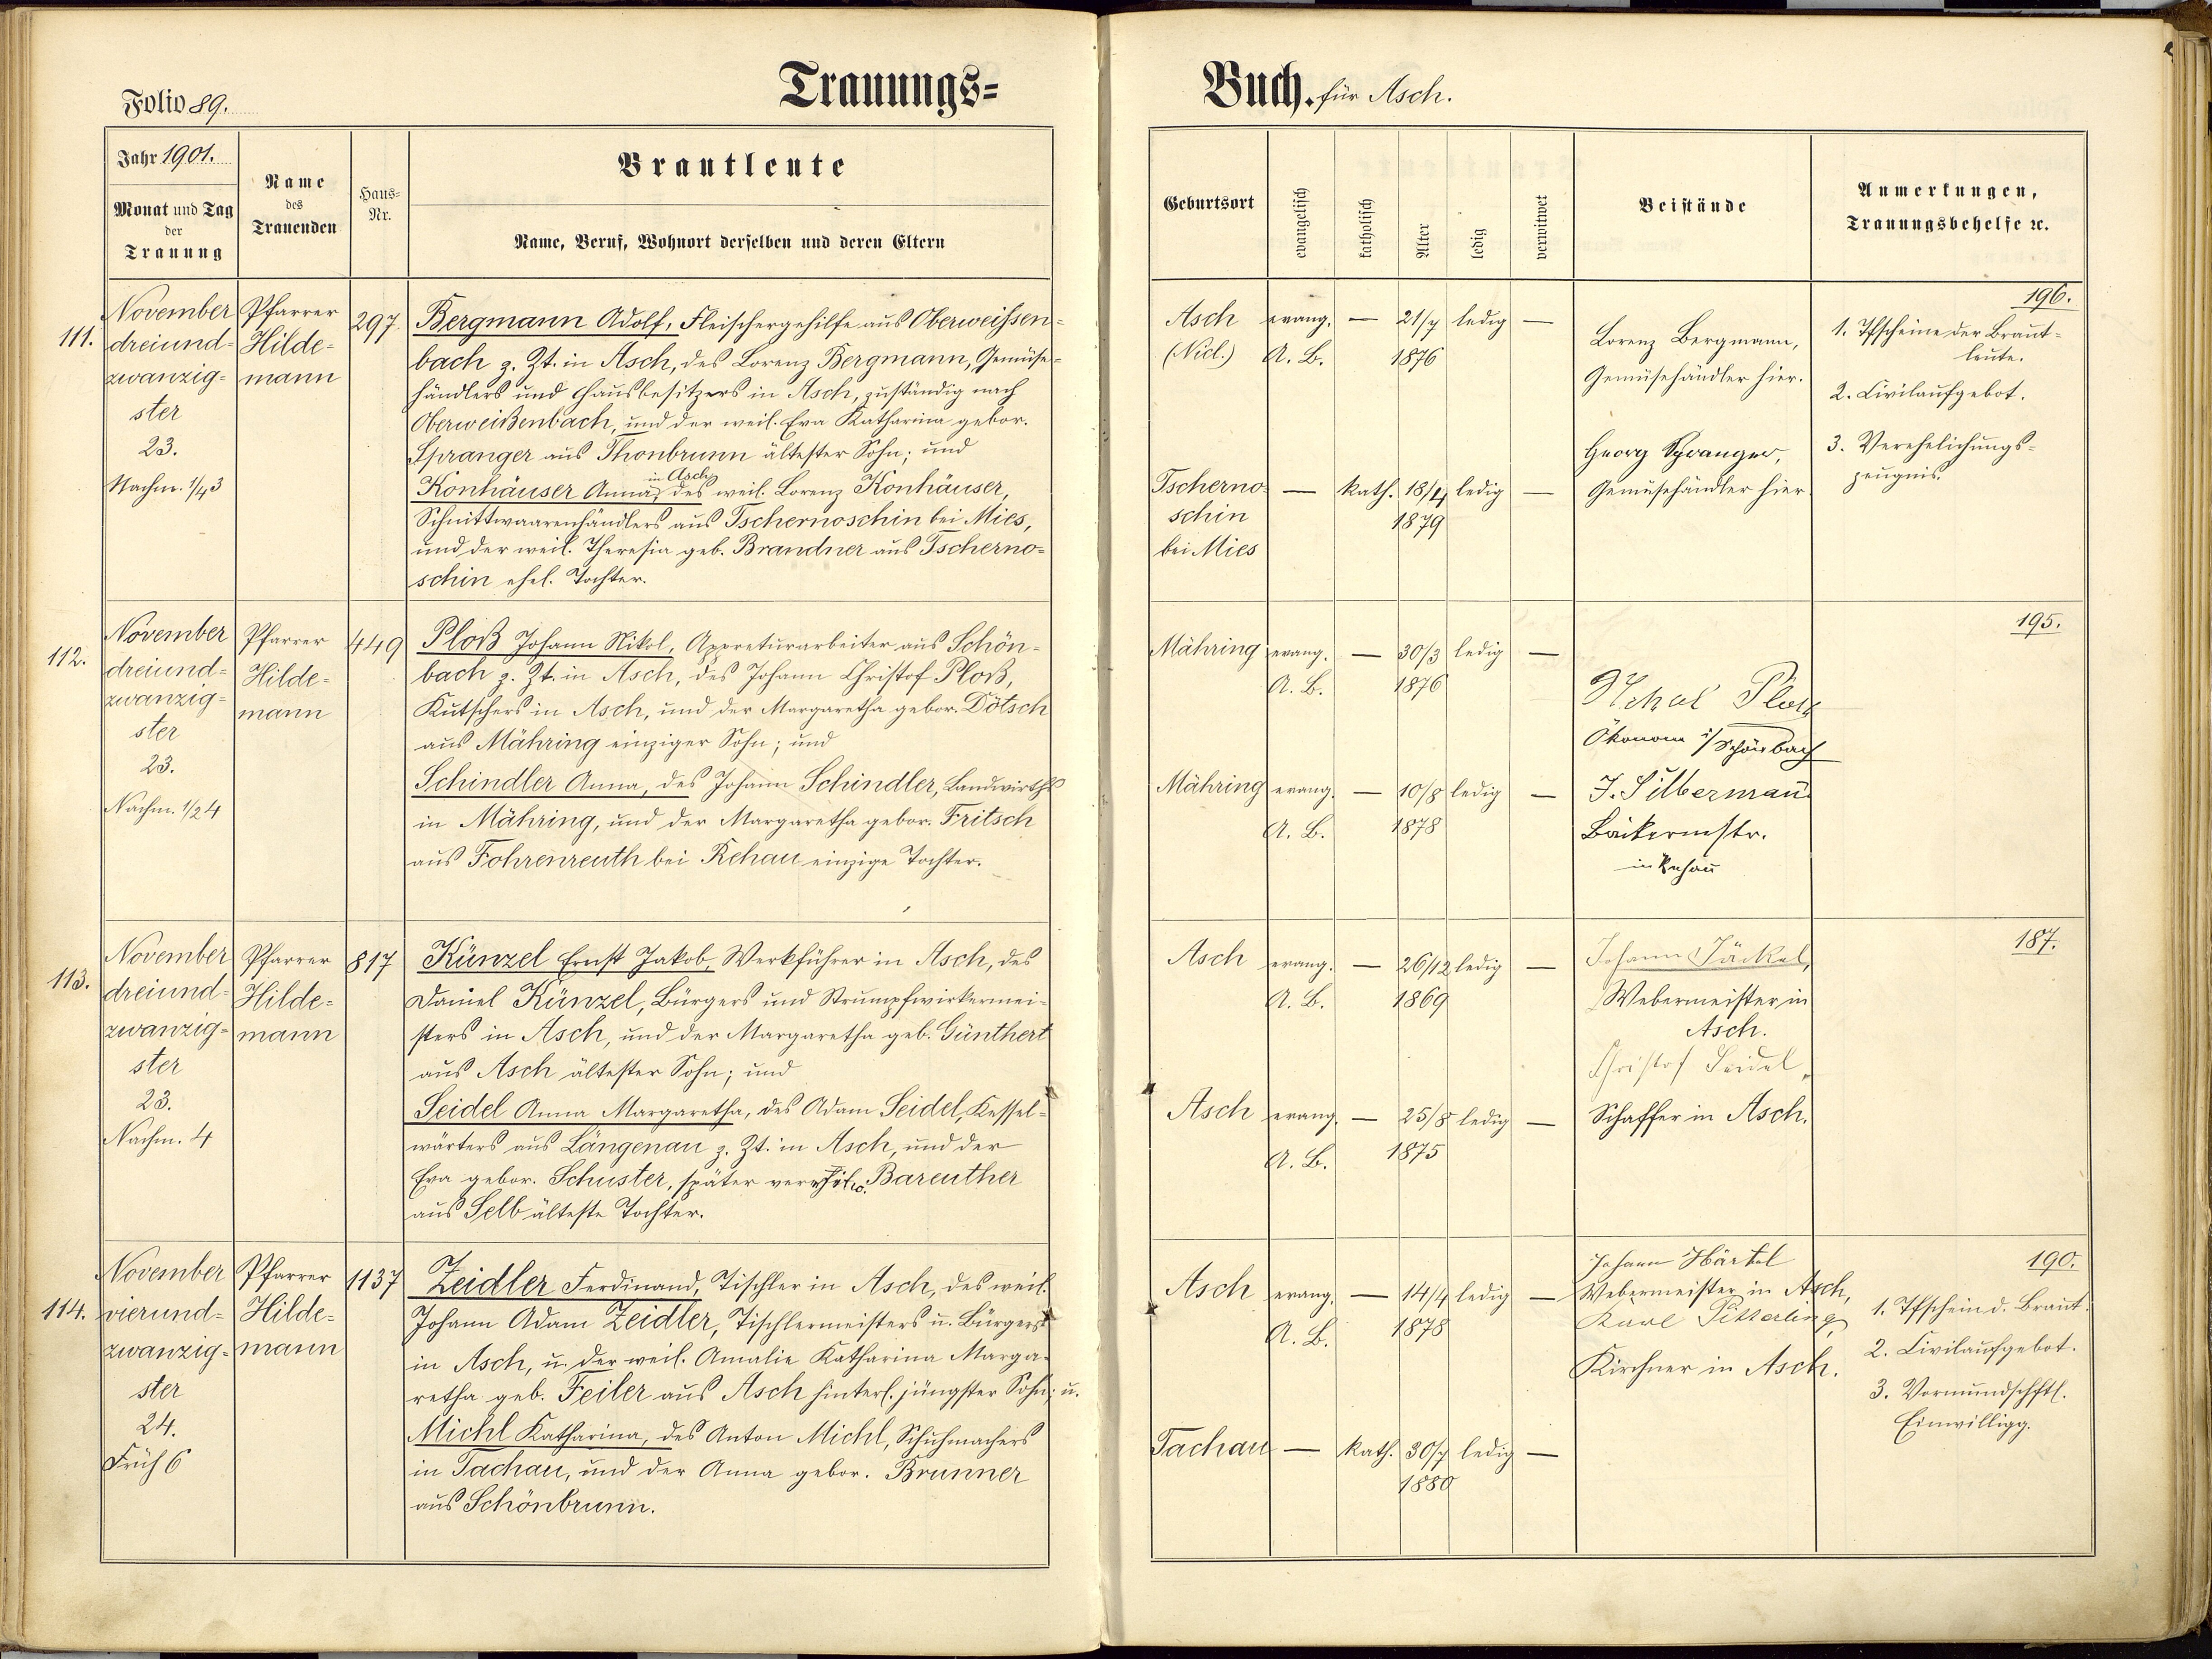 Folio 89.
Trauungs=
Buch. für Asch.
Jahr 1901.
Monat und Tag
der
Trauung
Name
des
Trauenden
Haus=
Nr.
Brautleute
Name, Beruf, Wohnort derselben und deren Eltern
Geburtsort
evangelisch
katholisch
Alter
ledig
verwitwet
Beistände
Anmerkungen,
Trauungsbehelfe ꝛc.
111.
November
dreiund=
zwanzig=
ster
23.
Nachm. 1/4 3
Pfarrer
Hilde=
mann
297.
Bergmann Adolf, Fleischergehilfe aus Oberweißen=
bach z. Zt. in Asch, des Lorenz Bergmann, Gemüse=
händlers und Hausbesitzers in Asch, zuständig nach
Oberweißenbach, und der weil. Eva Katharina gebor.
Spranger aus Thonbrunn ältester Sohn; und
in Asch
Konhäuser Anna, des weil. Lorenz Konhäuser,
Schnittwaarenhändlers aus Tschernoschin bei Mies,
und der weil. Theresia geb. Brandner aus Tscherno=
schin ehel. Tochter.
Asch
(Nicl.)
evang.
A. B.
—
21/7
1876
ledig
—
Tscherno=
schin
bei Mies
—
kath.
18/4
1879
ledig
—
Lorenz Bergmann,
Gemüsehändler hier.
Georg Spranger,
Gemüsehändler hier.
196.
1. Tfscheine der Braut=
leute.
2. Civilaufgebot.
3. Verehelichungs=
zeugnis.
112.
November
dreiund=
zwanzig=
ster
23.
Nachm. 1/2 4
Pfarrer
Hilde=
mann
449
Ploß Johann Nikol, Appreturarbeiter aus Schön=
bach z. Zt. in Asch, des Johann Christof Ploß,
Kutschers in Asch, und der Margaretha gebor. Dötsch
aus Mähring einziger Sohn; und
Schindler Anna, des Johann Schindler, Landwirths
in Mähring, und der Margaretha gebor. Fritsch
aus Fohrenreuth bei Rehau einzige Tochter.
Mähring
evang.
A. B.
—
30/3
1876
ledig
—
Mähring
evang.
A. B.
—
10/8
1878
ledig
—
Ploß
Ökonom i/ Schönbach
J. Silberman̄
Bäckermstr.
in Rehau
195.
113.
November
dreiund=
zwanzig=
ster
23.
Nachm. 4
Pfarrer
Hilde=
mann
817
Künzel Ernst Jakob, Werkführer in Asch, des
Daniel Künzel, Bürgers und Strumpfwirkermei=
sters in Asch, und der Margaretha geb. Günthert
aus Asch ältester Sohn; und
Seidel Anna Margaretha, des Adam Seidel, Kessel=
wärters aus Längenau z. Zt. in Asch, und der
Eva gebor. Schuster, später Bareuther
aus Selb älteste Tochter.
Asch
evang.
A. B.
—
26/12
1869
ledig
—
Asch
evang.
A. B.
—
25/8
1875
ledig
—
Johann Jäckel,
Webermeister in
Asch.
Christof Seidel,
Schaffer in Asch.
187.
114.
November
vierund=
zwanzig=
ster
24.
Früh 6
Pfarrer
Hilde=
mann
1137
Zeidler Ferdinand, Tischler in Asch, des weil.
Johann Adam Zeidler, Tischlermeisters u. Bürgers
in Asch, u. der weil. Amalie Katharina Marga=
retha geb. Feiler aus Asch hinterl. jüngster Sohn; u.
Michl Katharina, des Anton Michl, Schuhmachers
in Tachau, und der Anna gebor. Brunner
aus Schönbrunn.
Asch
evang.
A. B.
—
14/4
1878
ledig
—
Tachau
—
kath.
30/7
1880
ledig
—
Johann Härtel
Webermeister in Asch,
Karl Pitterling
Kirchner in Asch.
190.
1. Tfschein d. Braut.
2. Civilaufgebot.
3. Vormundschftl.
Einwilligg.